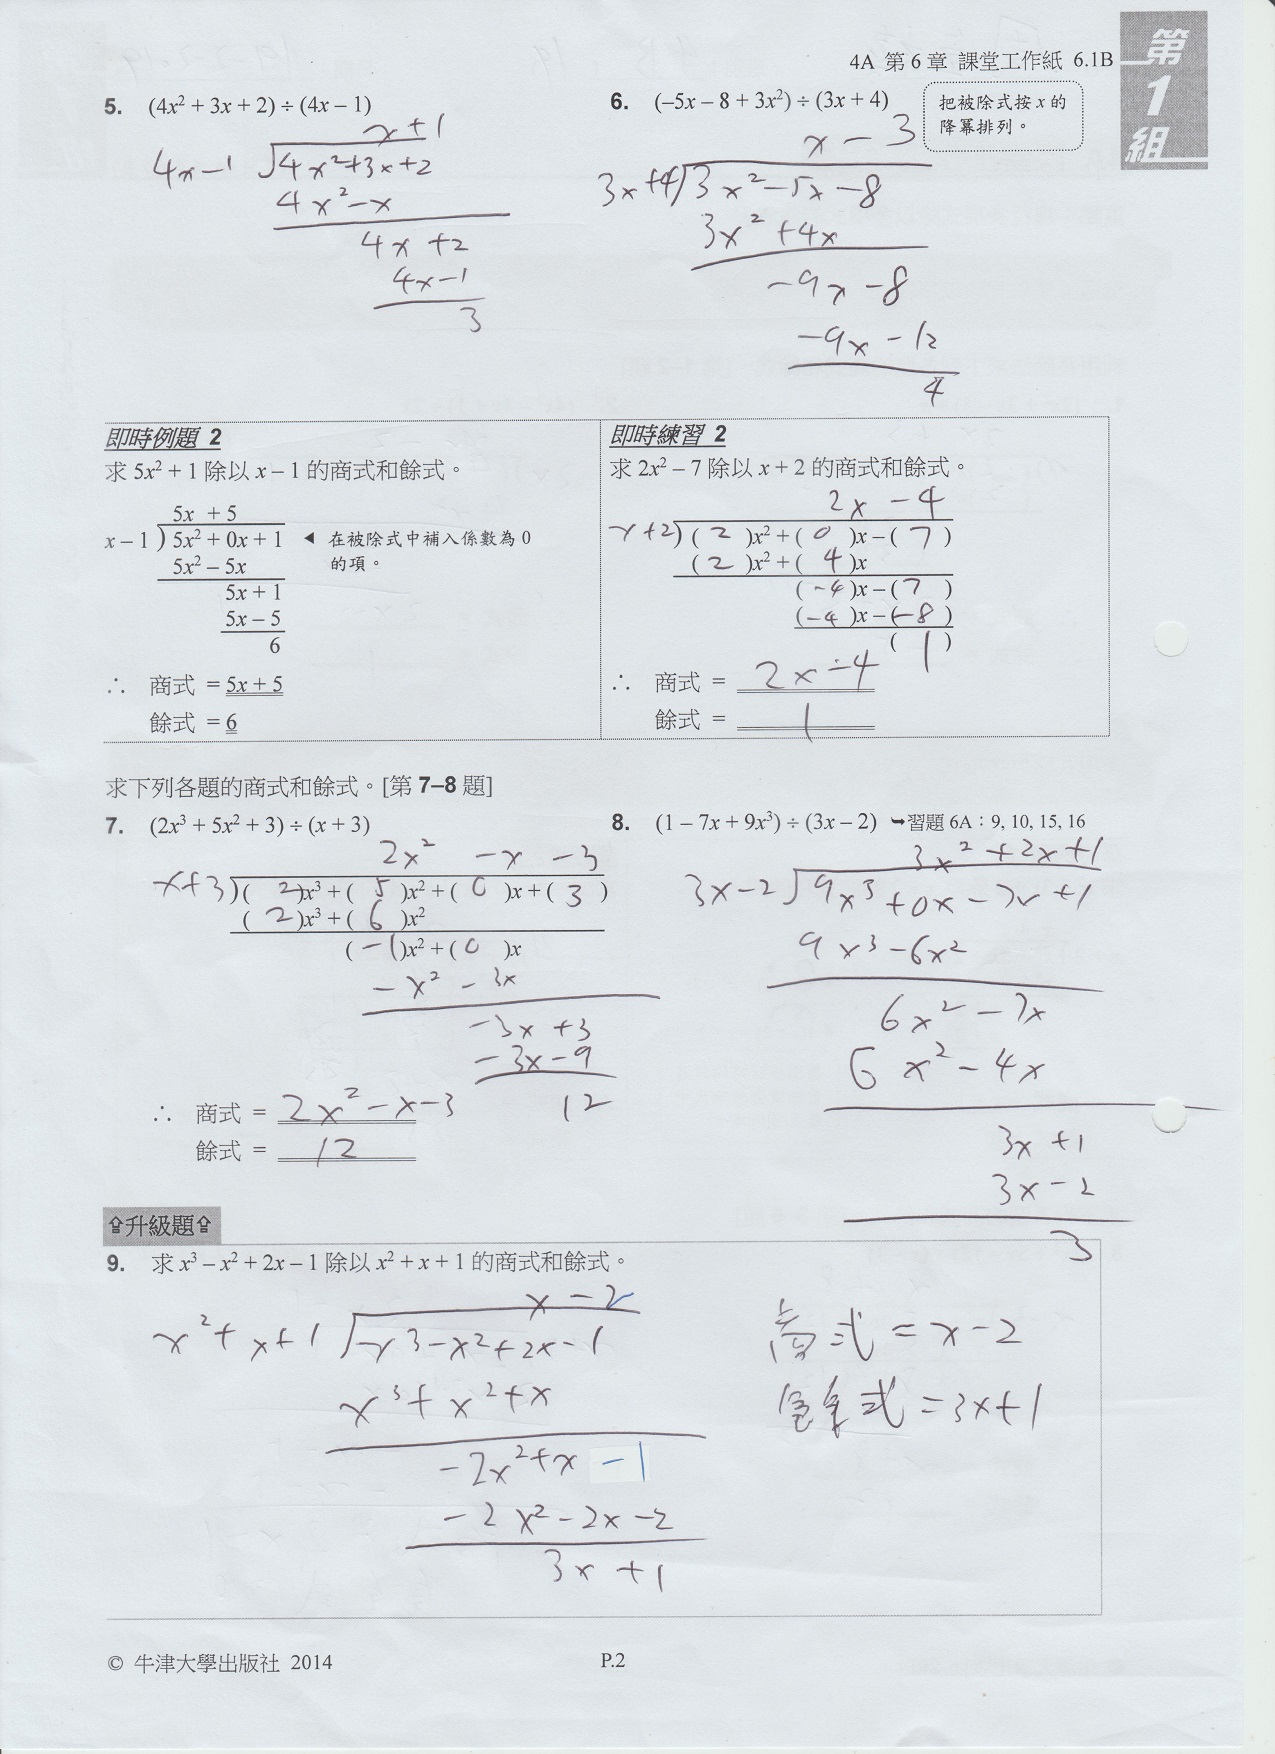 4A 第 6 章 課堂工作紙 6.1B
第1組
5. (4x² + 3x + 2) ÷ (4x – 1)
x + 1
4x – 1 ) 4x² + 3x + 2
4x² – x
4x + 2
4x – 1
3
6. (–5x – 8 + 3x²) ÷ (3x + 4)
把被除式按 x 的
降冪排列。
x – 3
3x + 4 ) 3x² – 5x – 8
3x² + 4x
–9x – 8
–9x – 12
4
即時例題 2
求 5x² + 1 除以 x – 1 的商式和餘式。
5x + 5
x – 1 ) 5x² + 0x + 1 ◄ 在被除式中補入係數為 0
的項。
5x² – 5x
5x + 1
5x – 5
6
∴ 商式 = 5x + 5
餘式 = 6
即時練習 2
求 2x² – 7 除以 x + 2 的商式和餘式。
2x – 4
x + 2 ) ( 2 )x² + ( 0 )x – ( 7 )
( 2 )x² + ( 4 )x
( –4 )x – ( 7 )
( –4 )x – ( –8 )
( 1 )
∴ 商式 = 2x – 4
餘式 = 1
求下列各題的商式和餘式。[第 7–8 題]
7. (2x³ + 5x² + 3) ÷ (x + 3)
2x² – x – 3
x + 3 ) ( 2 )x³ + ( 5 )x² + ( 0 )x + ( 3 )
( 2 )x³ + ( 6 )x²
( –1 )x² + ( 0 )x
–x² – 3x
–3x + 3
–3x – 9
12
∴ 商式 = 2x² – x – 3
餘式 = 12
8. (1 – 7x + 9x³) ÷ (3x – 2) ➥習題 6A：9, 10, 15, 16
3x² + 2x + 1
3x – 2 ) 9x³ + 0x – 7x + 1
9x³ – 6x²
6x² – 7x
6x² – 4x
3x + 1
3x – 2
3
⇧升級題⇧
9. 求 x³ – x² + 2x – 1 除以 x² + x + 1 的商式和餘式。
x – 2
x² + x + 1 ) x³ – x² + 2x – 1
x³ + x² + x
–2x² + x – 1
–2x² – 2x – 2
3x + 1
商式 = x – 2
餘式 = 3x + 1
© 牛津大學出版社 2014
P.2